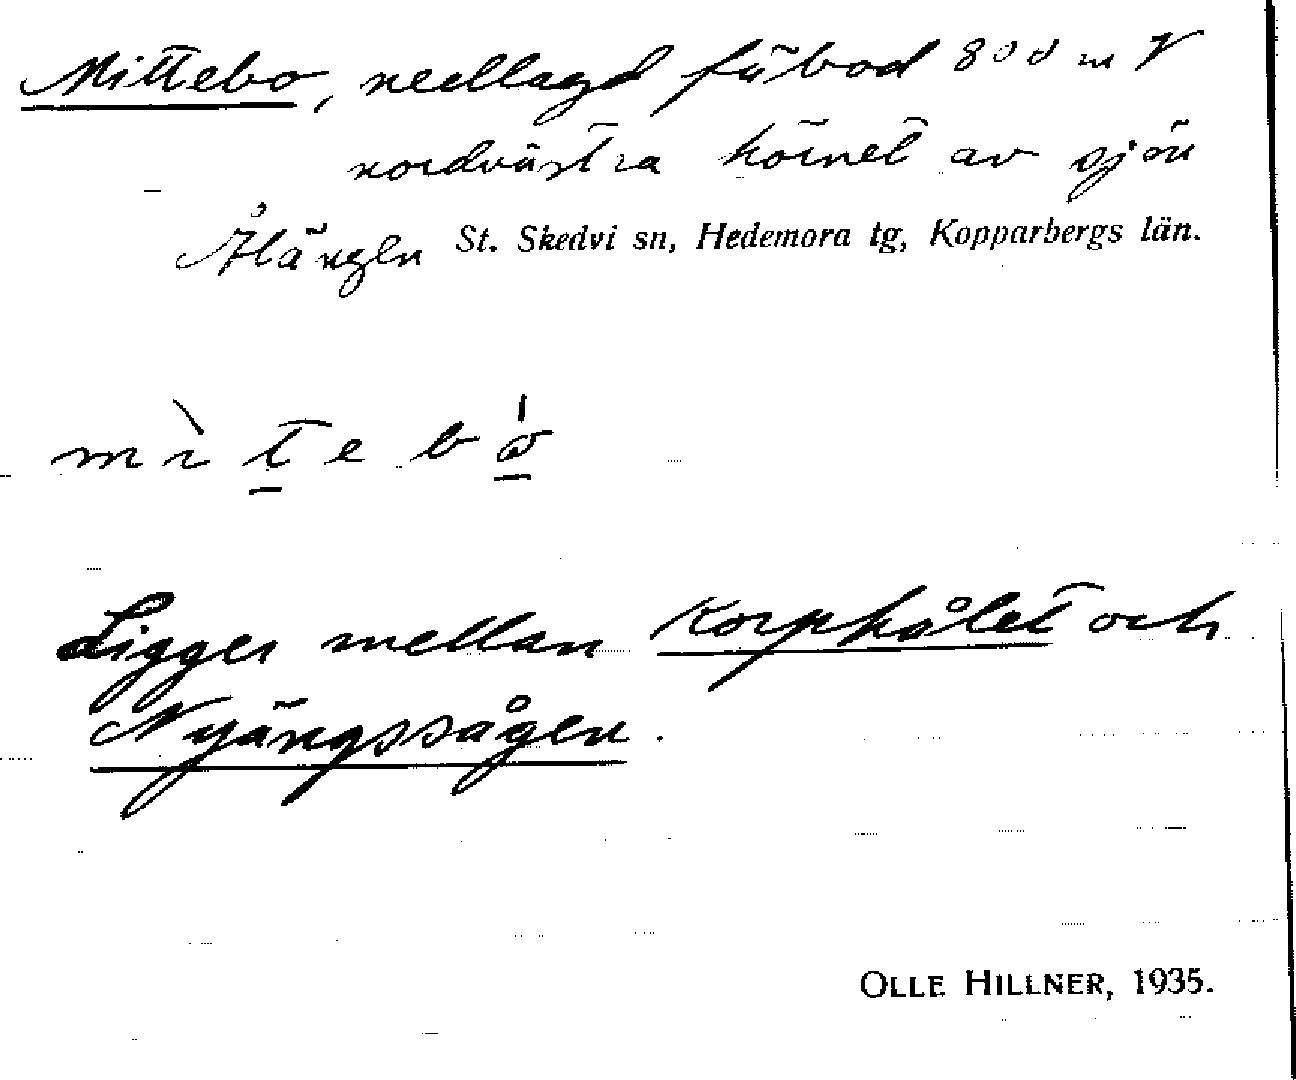 Mittebo, nedlagd fäbod 800 m V
nordvästra hörnet av sjön
Ålängen St. Skedvi sn, Hedemora tg, Kopparbergs län.
Ligger mellan Korphålet och
Nyängssågen.
OLLE HILLNER, 1935.